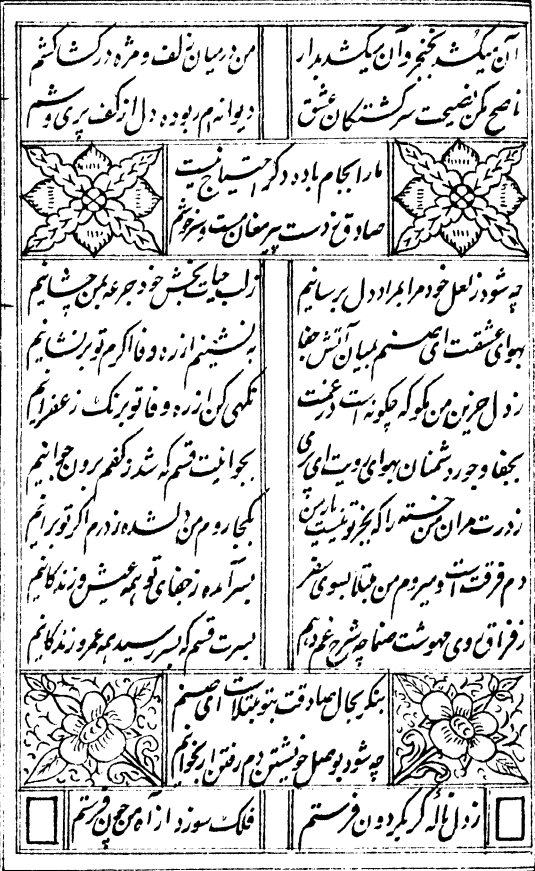 آن میکشد بخنجر و آن میکشد بدار
من در میان زلف و مژه در کشاکشم
ناصح مکن نصیحت سرکشتکان عشق
دیوانه ام ربوده دل از کف پری وشم
ما را بجام باده دکر احتیاج نیست
صادق ز دست پیر مغان مست و سرخوشم
چه شود ز لعل خود مرا بمراد دل برسانیم
ز لب حیات بخش خود جرعه بمن چشانیم
بهوای عشقت ای صنم بمیان آتش جفا
بنشینم از ره وفا اکرم تو برنشانیم
ز دل حزین من مکو که چکونه است در غمت
نکهی کن از ره وفا تو برنک زعفرانیم
بجفا و جور دشمنان بهوای رویت ای پری
بجوانیت قسم که شد ز کفم برون جوانیم
ز درت مران من خسته را که بجز تو نیست یار من
بکجا روم من دلشده ز درم اکر تو برانیم
دم فرقت است و میروم من مبتلا بسوی سفر
بسر آمده ز جفای تو همه عیش و زندکانیم
ز فراق روی مهوشت صنما چه شرح غم دهم
بسرت قسم که بسر رسید همه عمر و زندکانیم
بنکر بحال صادقت بتو مبتلاست ای صنم
چه شود بوصل خویشتن دم رفتن ار بخوانیم
ز دل ناله کر بکردون فرستم
فلک سوزد از آه من چون فرستم